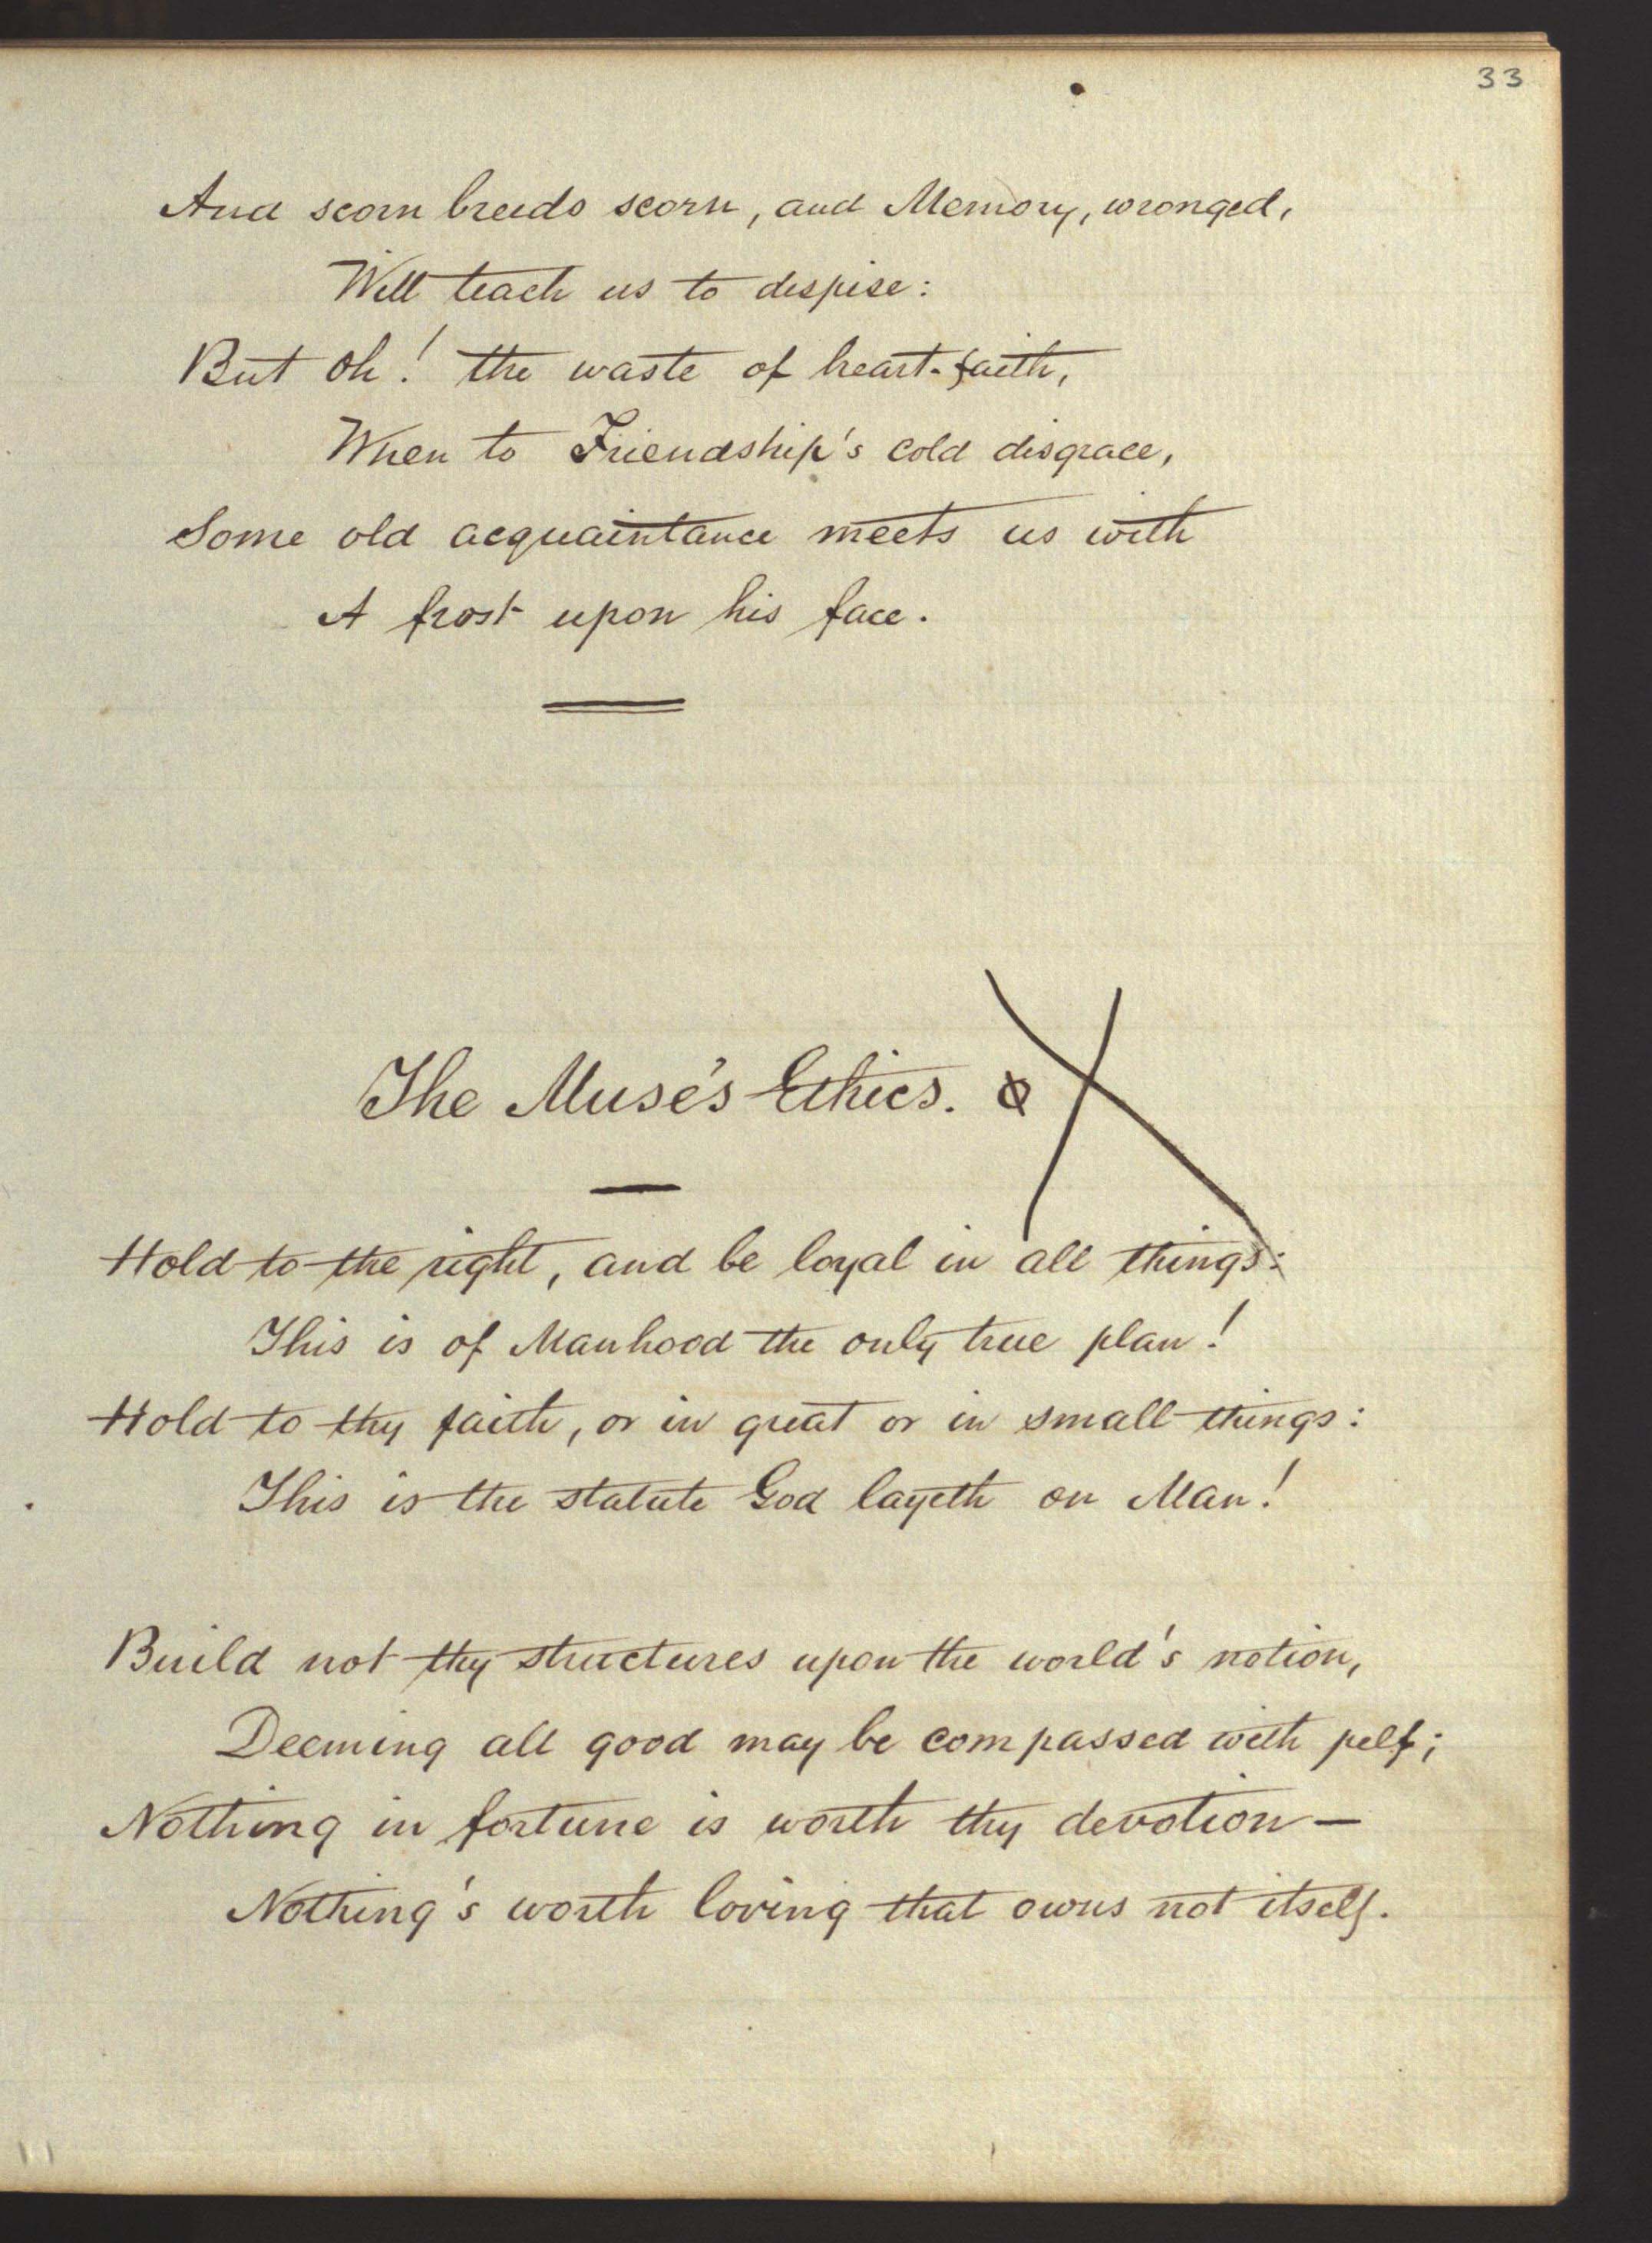 33
And scorn breeds scorn, and Memory, wronged,
Will teach us to despise:
But oh! the waste of heart-faith,
When to Friendship's cold disgrace,
Some old acquaintance meets us with
A frost upon his face.
The Muse's Ethics.
Hold to the right, and be loyal in all things:
This is of Manhood the only true plan!
Hold to thy faith, or in great or in small things:
This is the statute God layeth on Man!
Build not thy structures upon the world's notion,
Deeming all good may be compassed with pelf;
Nothing in fortune is worth thy devotion—
Nothing's worth loving that owns not itself.